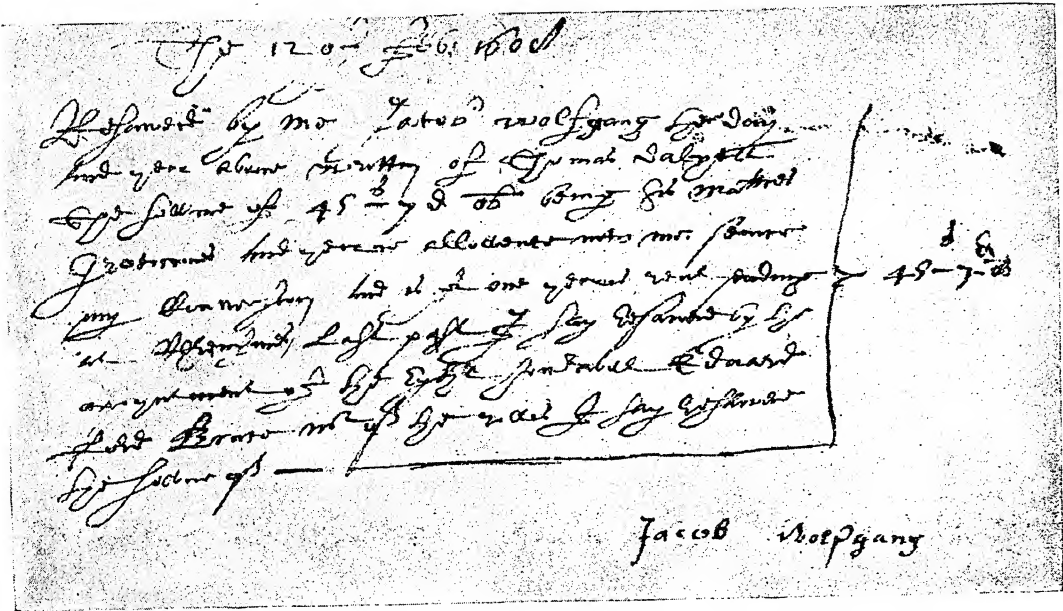 The 12 of feb. 1608
Resaved by me Jacob wolfgang the day
and year above wrytten of Thomas dalyell
the Some of 45 s 7 d ob being his Matties
and yearue allowance unto me sence
my and is for one yeares rent ending
at last past I say Resaved by the
apoyntment of the Ryght honrabel Edward
Lord Bruce mr of the rolles I say Resaved
the Some of
s d
45 - 7 - ob
Jacob Wolfgang